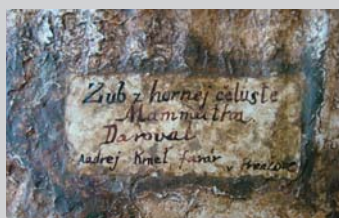 Zub z hornej čeluste
Mammutha.
Daroval
Andrej Kmeť farár v